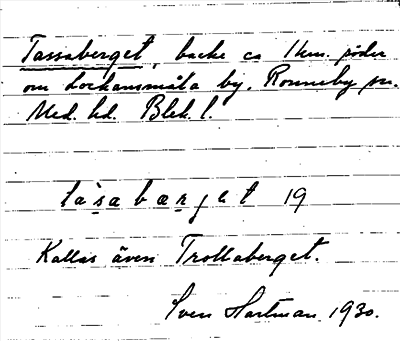 Tassaberget, backe ca 1 km. söder
om Lockansmåla by. Ronneby sn.
Med. hd. Blek. l.
tàsabærjet 19
Kallas även Trollaberget.
Sven Hartman 1930.